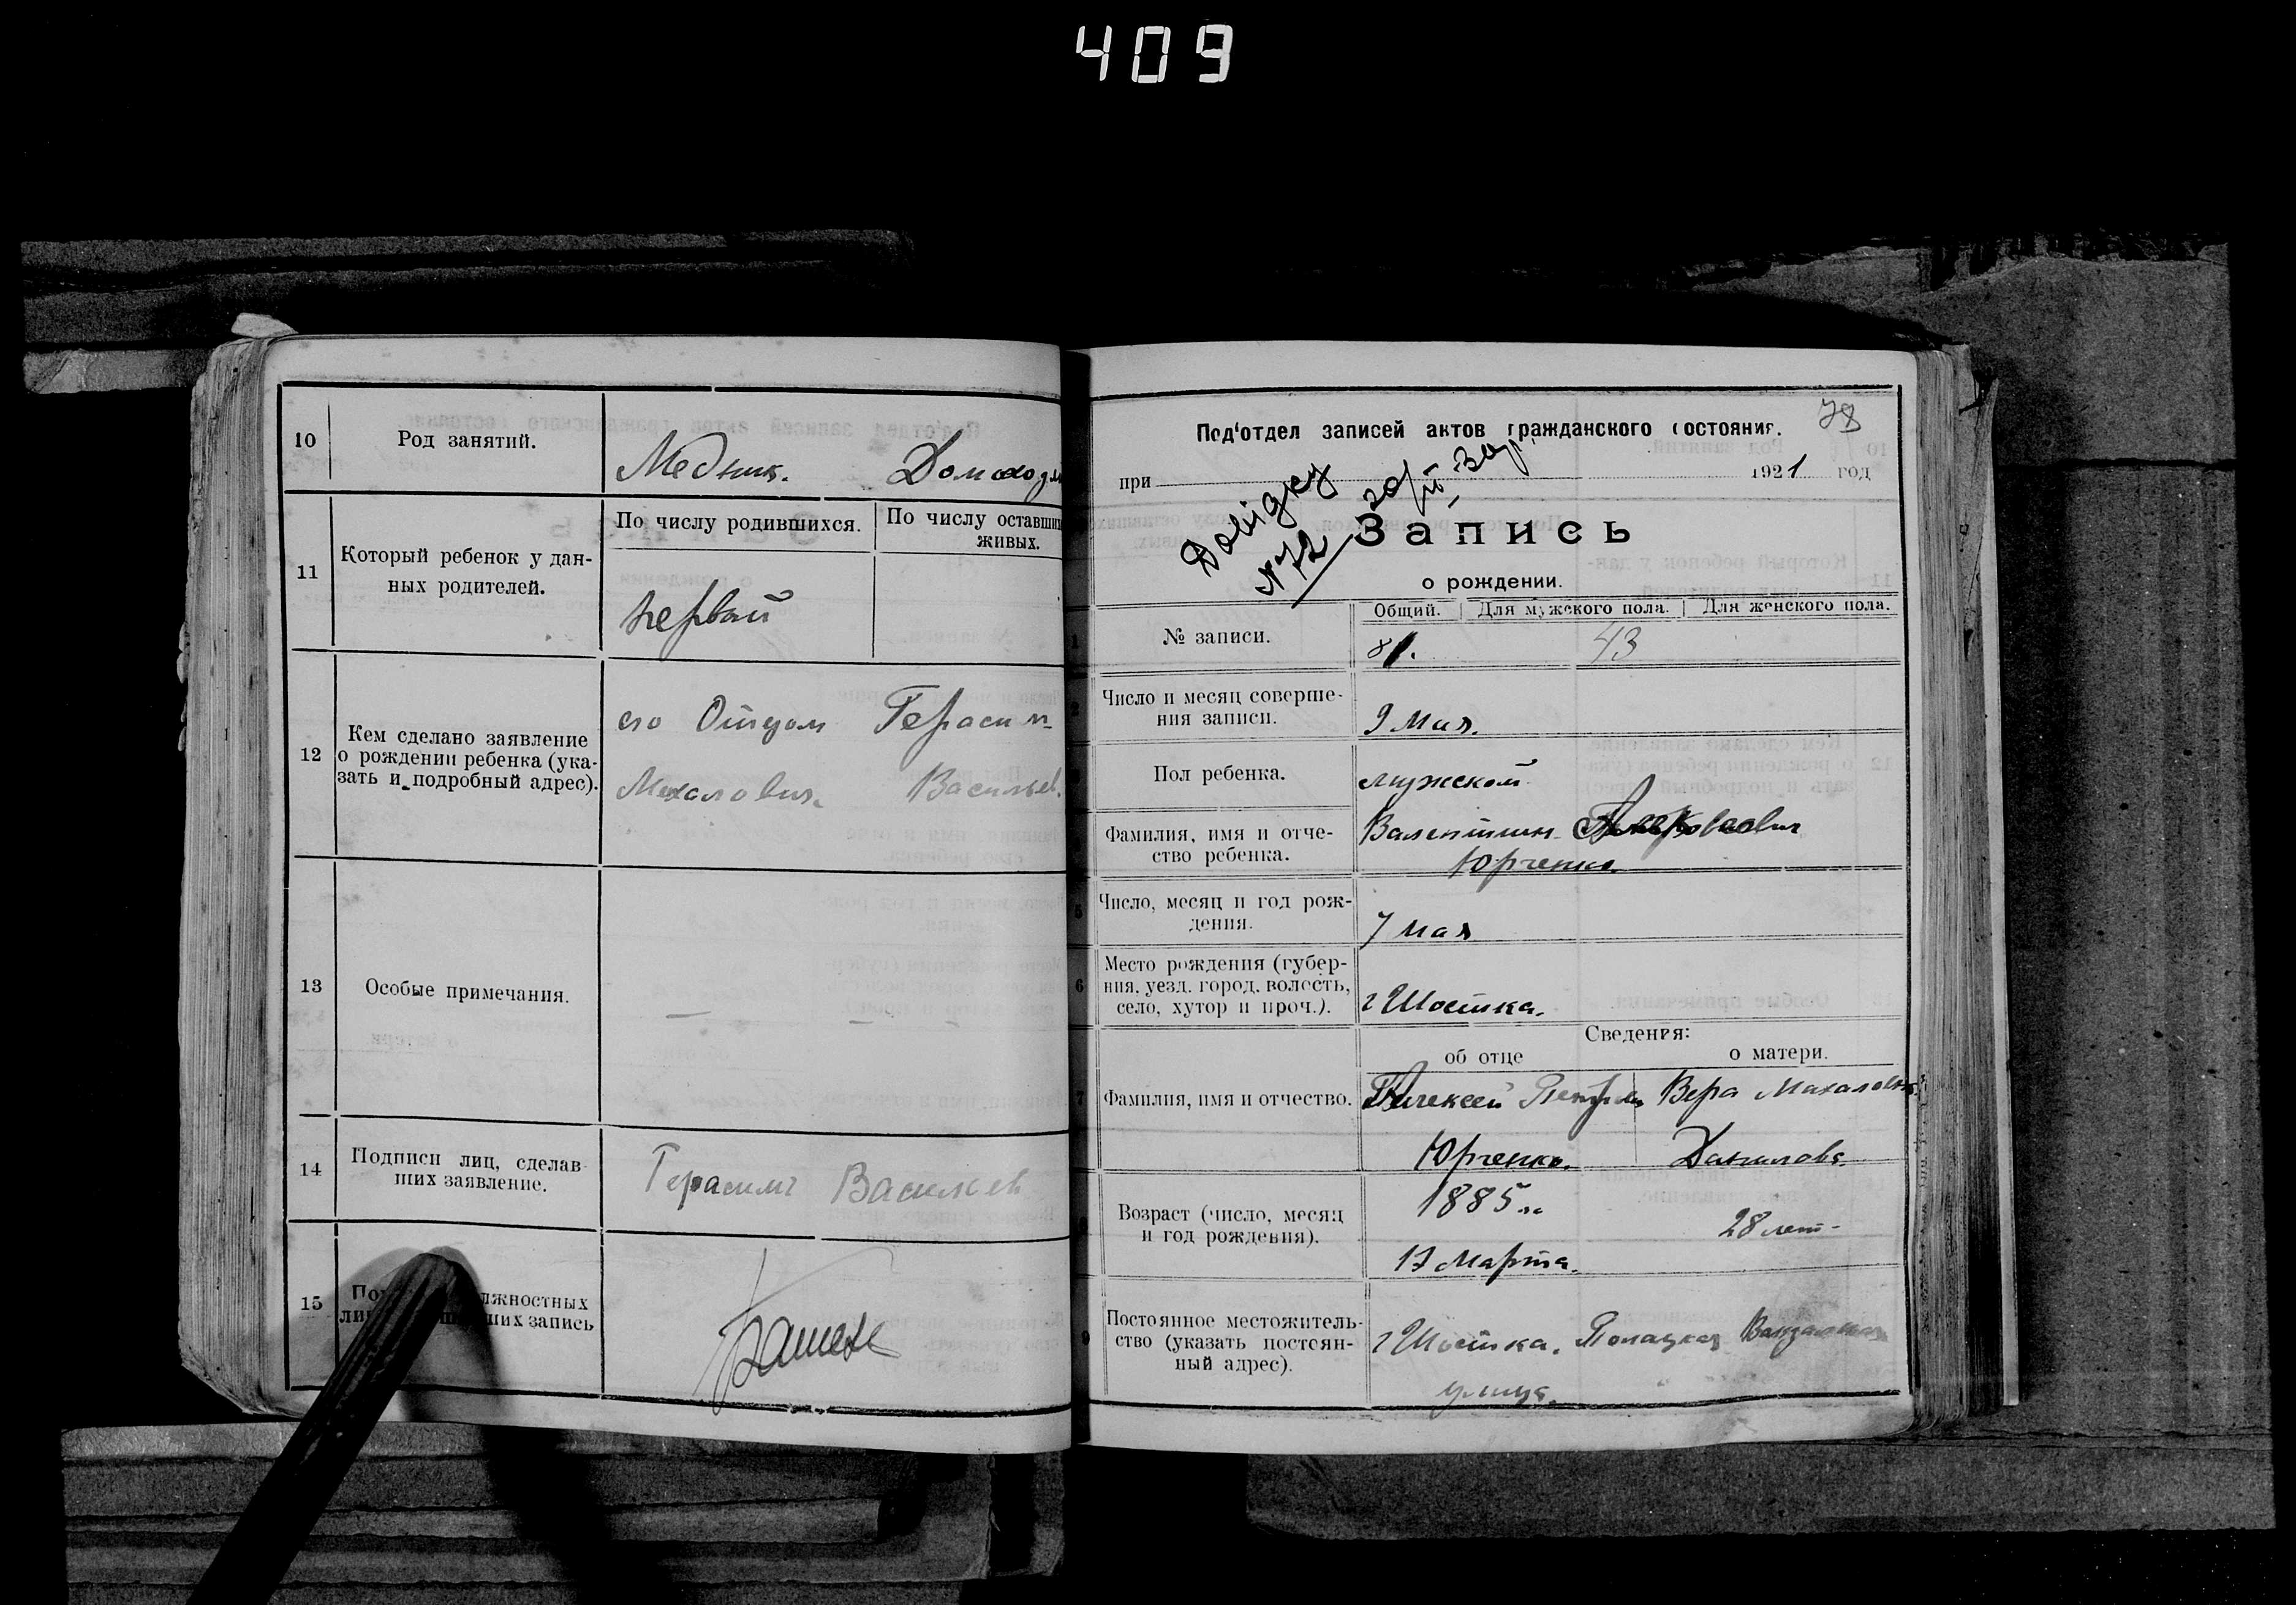 409
10
Род занятий.
Медник.
11
Который ребенок у дан-
ных родителей.
По числу родившихся.
По числу оставших
живых.
первый
12
Кем сделано заявление
о рождении ребенка (ука-
зать и подробный адрес).
его Отцом Герасим
Михалович Васильев.
13
Особые примечания.
— — —
14
Подписи лиц, сделав-
ших заявление.
Герасимъ Васильев
15
лжностных
ших запись
78
Под'отдел записей актов гражданского состояния.
при
1921 год
Довідку
N 72
Запись
о рождении.
1
№ записи.
Общий. Для мужского пола. Для женского пола.
81. 43
2
Число и месяц соверше-
ния записи.
9 Мая.
Пол ребенка.
мужской
Фамилия, имя и отче-
ство ребенка.
Валентин
Юрченко.
5
Число, месяц и год рож-
дения.
7 мая
6
Место рождения (губер-
ния, уезд, город, волость,
село, хутор и проч.).
г Шостка.
Сведения:
об отце о матери.
7
Фамилия, имя и отчество.
Алексей Вера Михаловна
Юрченко. Данилова.
8
Возраст (число, месяц
и год рождения).
1885
17 Марта.
28 лет-
9
Постоянное местожитель-
ство (указать постоян-
ный адрес).
г Шостка. Вокзальная
улица.